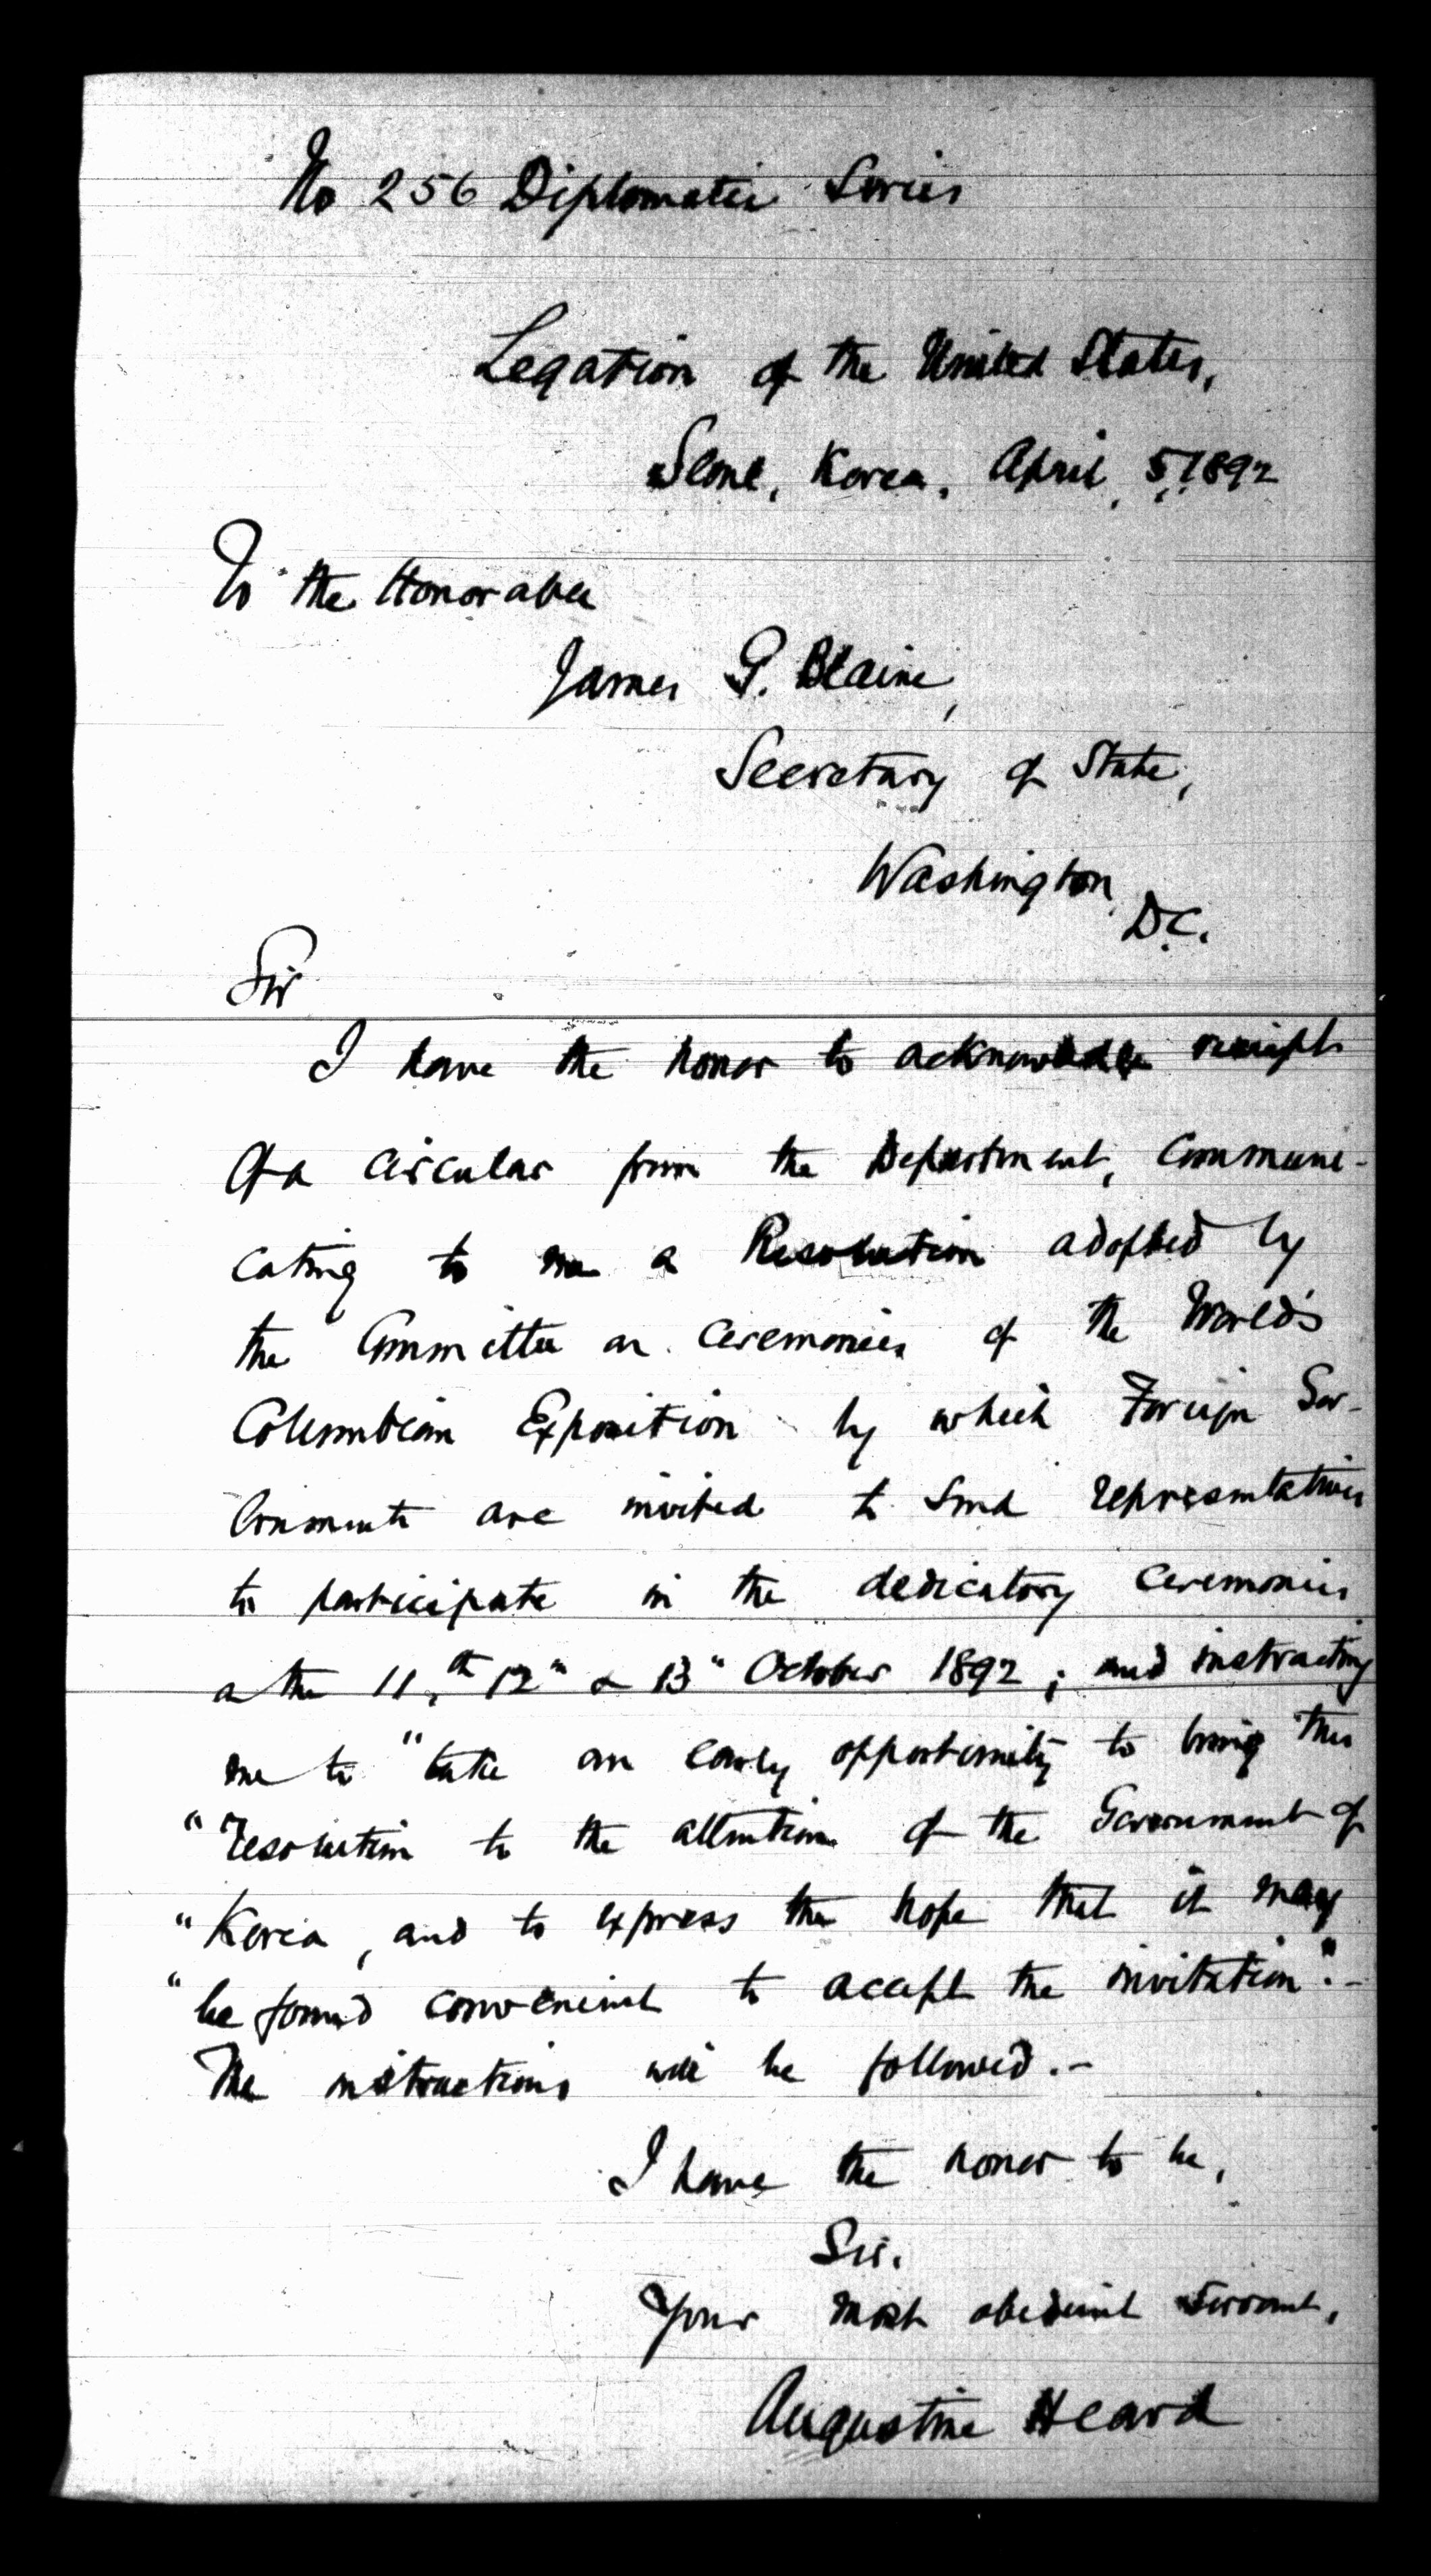 No 256 Diplomatic Series
Legation of the United States,
Seoul, Korea, April, 5, 1892
To the Honorable
James G. Blaine,
Secretary of State,
Washington,
D.C.
Sir
I have the honor to acknowledge receipt
Of a circular from the Department, communi-
cating to me a Resolution adopted by
the Committee on Ceremonies of the World's
Columbian Exposition by which Foreign Gov-
ernments are invited to send representatives
to participate in the dedicatory ceremonies
on the 11,th 12" & 13" October 1892; and instructing
me to "take an early opportunity to bring this
"resolution to the attention of the Government of
"Korea, and to express the hope that it may
"be found convenient to accept the invitation".-
The instructions will be followed.-
I have the honor to be,
Sir.
Your most obedient servant,
Augustine Heard